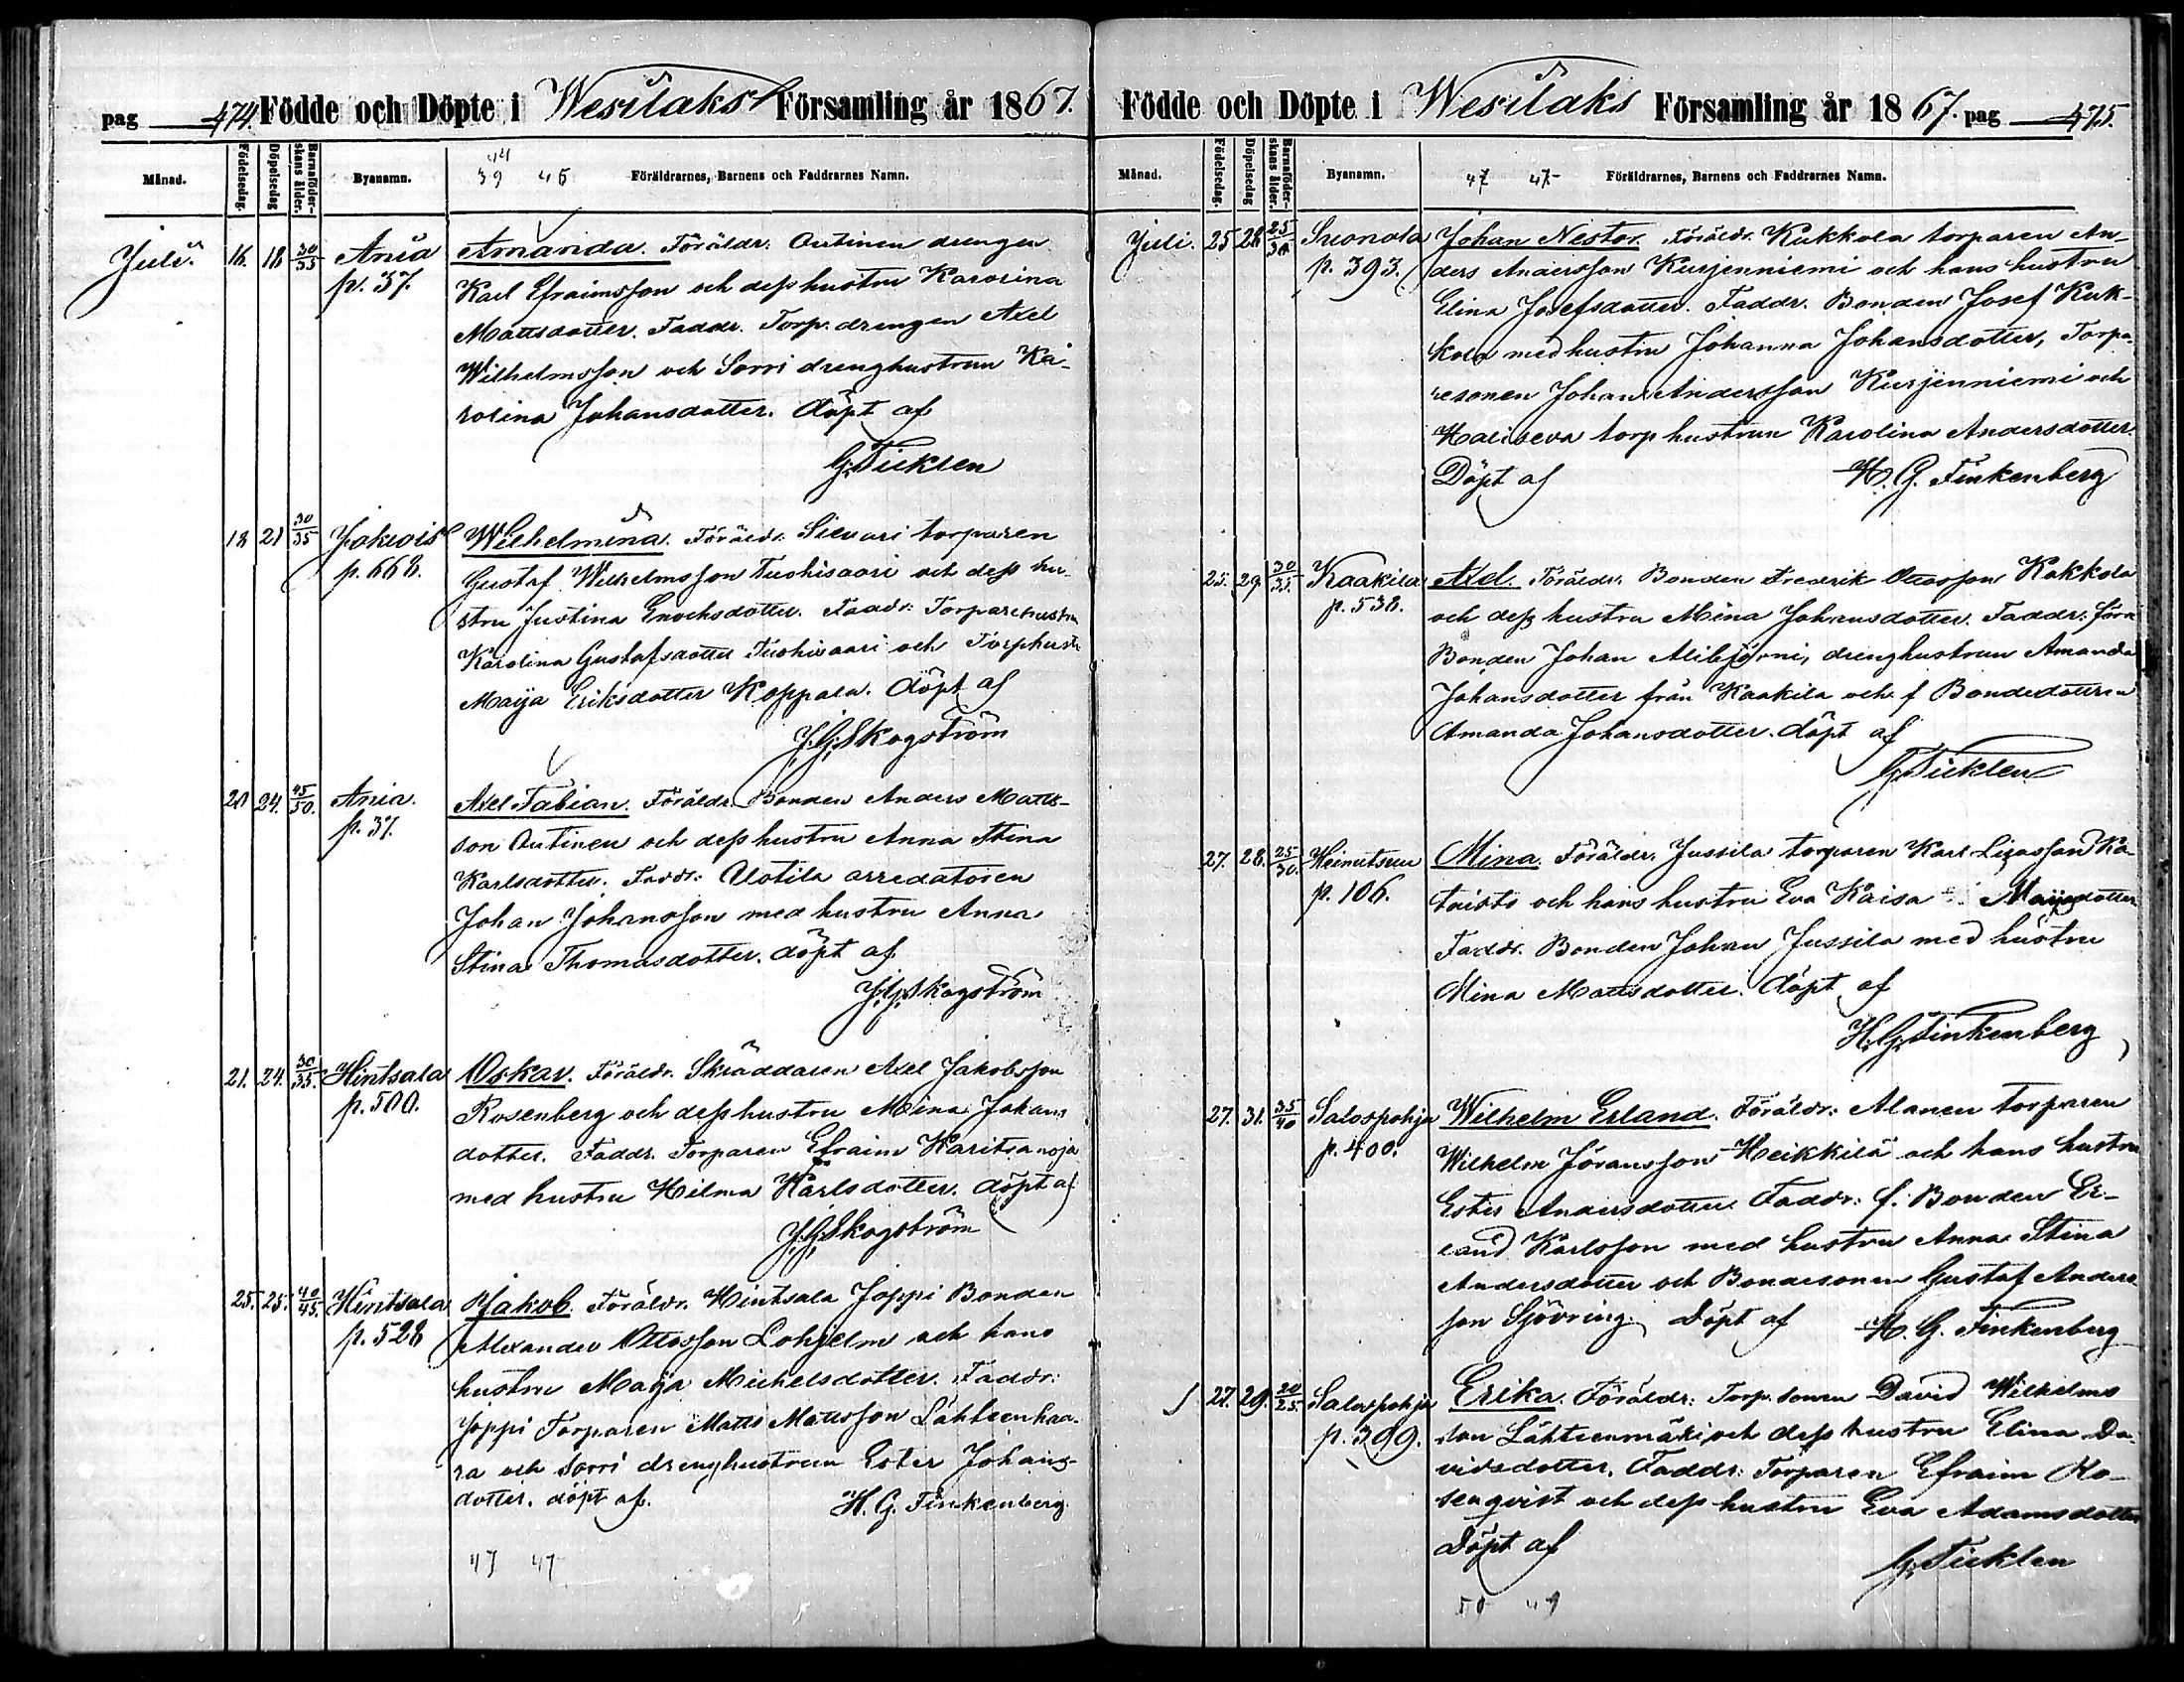 pag 474. Födde och Döpte i Wesilaks Församling år 1867.
Månad. Födelsedag. Döpelsedag Barnaföder-skans ålder. Byanamn. Föräldrarnes, Barnens och Faddrarnes Namn.
44
39 45
Juli. 16. 18 30/35 Ania Amanda. Föräldr. Outinen drengen
p. 37. Karl Efraimsson och dess hustru Karorina
Mattsdotter. Faddr. Torp. drengen Axel
Wilhelmsson och Sorri drenghustrun Ka-
rolina Johansdotter. döpt af
G. Ticklen
18 21 30/35 Jokiois Wilhelmina. Föräldr. Sievari torparen
p. 668. Gustaf Wilhelmsson Tuohisaari och dess hu-
stru Justina Enochsdotter. Faddr. Torparehustru
Karolina Gustafsdotter Tuohisaari och Torphustr
Maija Eriksdotter Koppala. döpt af
J. G. Skogström
20 24. 45/50. Ania. Axel Fabian. Föräldr. Bonden Anders Matts-
p. 37. son Outinen och dess hustru Anna Stina
Karlsdotter. Faddr: Uotila arredatoren
Johan Johansson med hustru Anna
Stina Thomasdotter. döpt af
J. G. Skogström
21. 24. 30/35. Hintsala Oskar. Föräldr. Skräddaren Axel Jakobsson
p. 500. Rosenberg och dess hustru Mina Johans
dotter. Faddr. Torparen Efraim Karitsanoja
med hustru Hilma Karlsdotter. döpt af
J. G. Skogström
25. 25. 40/45. Hintsala Jakob. Föräldr. Hintsala Joppi Bonden
p. 528 Alexander Ottosson Lohjelm och hans
hustru Maija Michelsdotter. Faddr:
Joppi Torparen Matts Mattsson Lähteenhaa-
ra och Sorri drenghustrun Ester Johans-
dotter. döpt af. H. G. Finkenberg
47 47
Födde och Döpte i Wesilaks Församling år 1867. pag 475.
Månad. Födelsedag. Döpelsedag Barnaföder-skans ålder. Byanamn. Föräldrarnes, Barnens och Faddrarnes Namn.
47 47
Juli. 25 28 25/30 Suonola Johan Nestor. Föräldr. Kukkola torparen An-
p. 393. ders Andersson Kurjenniemi och hans hustru
Elina Josefsdotter. Faddr. Bonden Josef Kuk-
kola med hustru Johanna Johansdotter, Torpa-
resonen Johan Andersson Kurjenniemi och
Haliseva torphustrun Karolina Andersdotter.
Döpt af H. G. Finkenberg
25. 29 30/35. Kaakila Axel. Föräldr. Bonden Fredrik Ottosson Kokkola
p. 538. och dess hustru Mina Johansdotter. Faddr: förra
Bonden Johan Alibjörni, drenghustrun Amanda
Johansdotter från Kaakila och f Bondedottren
Amanda Johansdotter. döpt af
G. Ticklen
27. 28. 25/30. Heinutsuu Mina. Föräldr. Jussila torparen Karl Lizasson Ka-
p. 106. taisto och hans hustru Eva Kaisa Maijasdotter
Faddr. Bonden Johan Jussila med hustru
Mina Mattsdotter. Döpt af
H. G. Finkenberg
27. 31. 35/40 Salospohja Wilhelm Erland. Föräldr: Alanen torparen
p. 400. Wilhelm Göransson Heikkilä och hans hustru
Ester Andersdotter. Faddr: f. Bonden Er-
land Karlsson med hustru Anna Stina
Andersdotter och Bondesonen Gustaf Anders
son Sjövring. Döpt af H. G. Finkenberg
27. 29. 20/25. Salospohja Erika. Föräldr: Torp. sonen David Wilhelms
p. 399. son Lähteenmäki och dess hustru Elina Da-
vidsdotter. Faddr: Torparen Efraim Ro-
senqvist och dess hustru Eva Adamsdotter
Döpt af
G. Ticklen
50 49